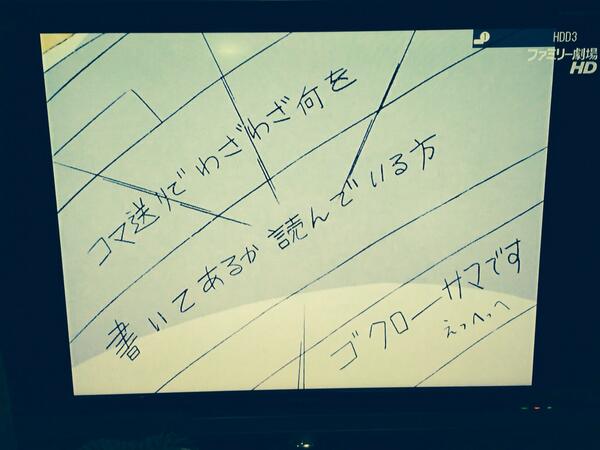 HDD3
ファミリー劇場
HD
コマ送りでわざわざ何を
書いてあるか読んでいる方
ゴクローサマです
えっへっへ